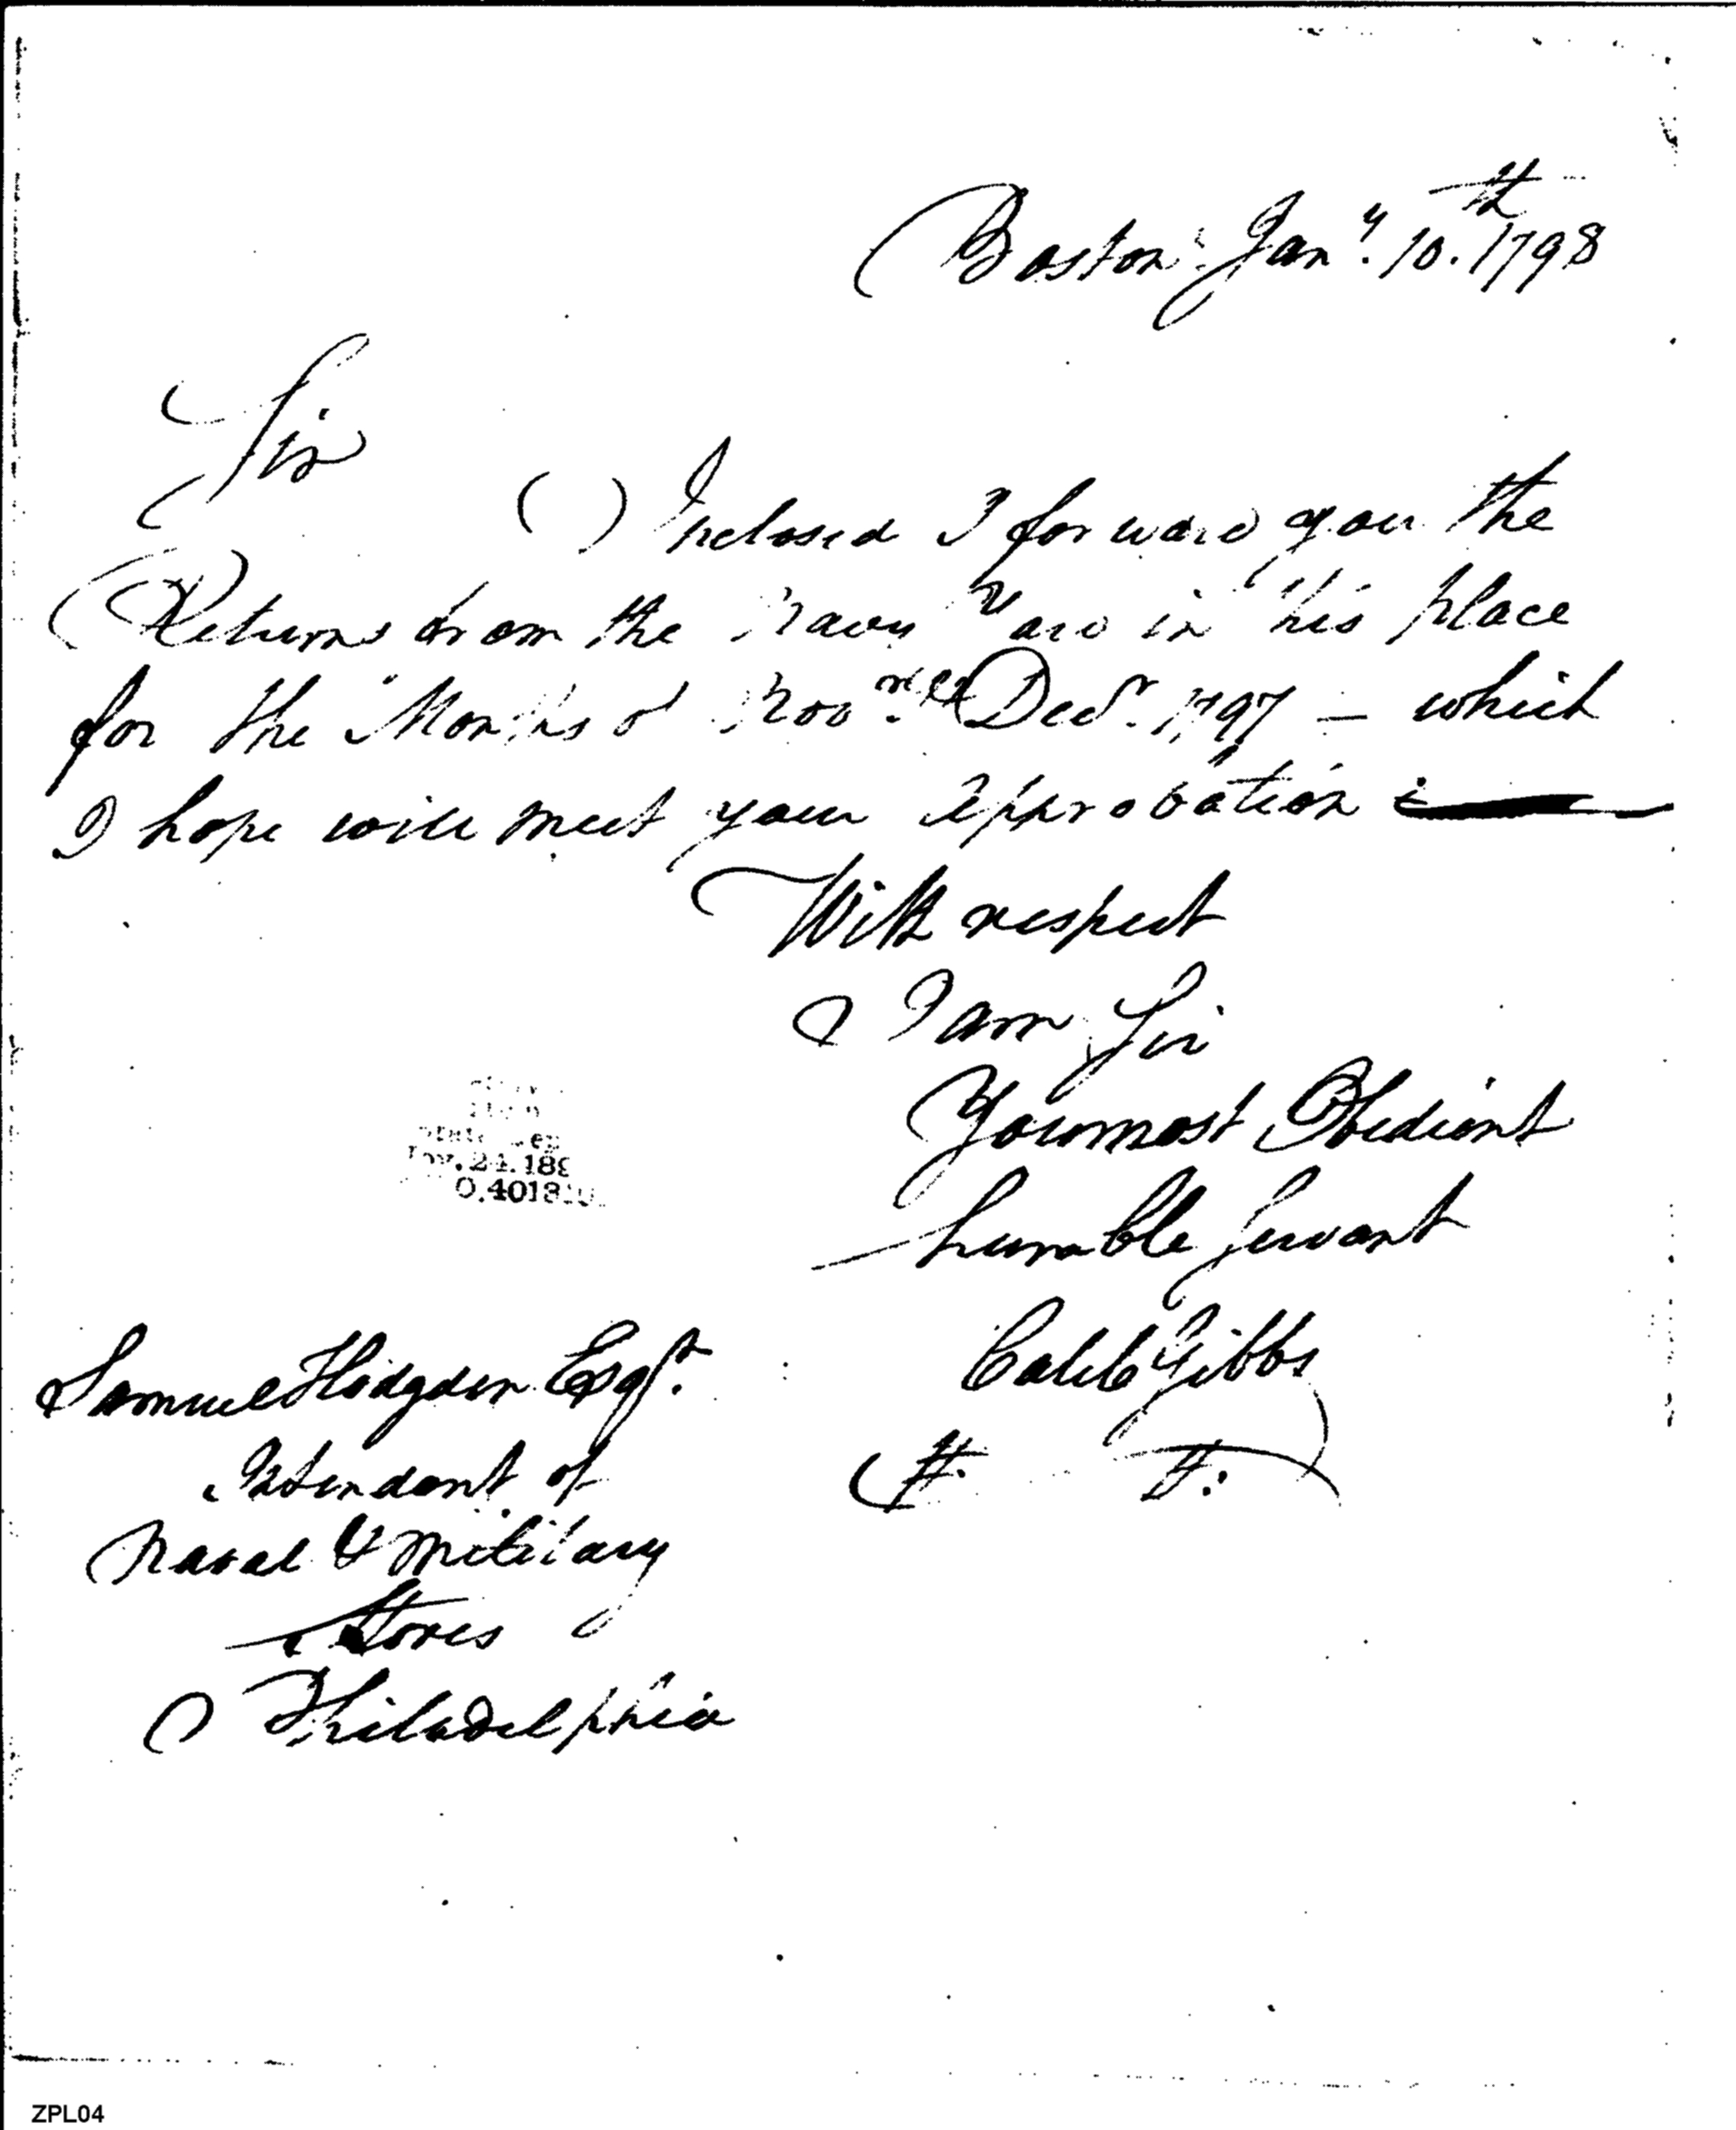 Boston Jan.y 10.th 1798
Sir
Inclosed I forward you the
Returns from the Navy Yard in this place
for the Months of Nov.r & Dec.r 1797 — which
I hope will meet your approbation
With respect
I am Sir
Your most Obedient
humble Servant
Caleb Gibbs
Samuel Hodgdon Esq.r
Intendant of
Naval & Military
Stores
Philadelphia
24. 189
0.4018
ZPL04